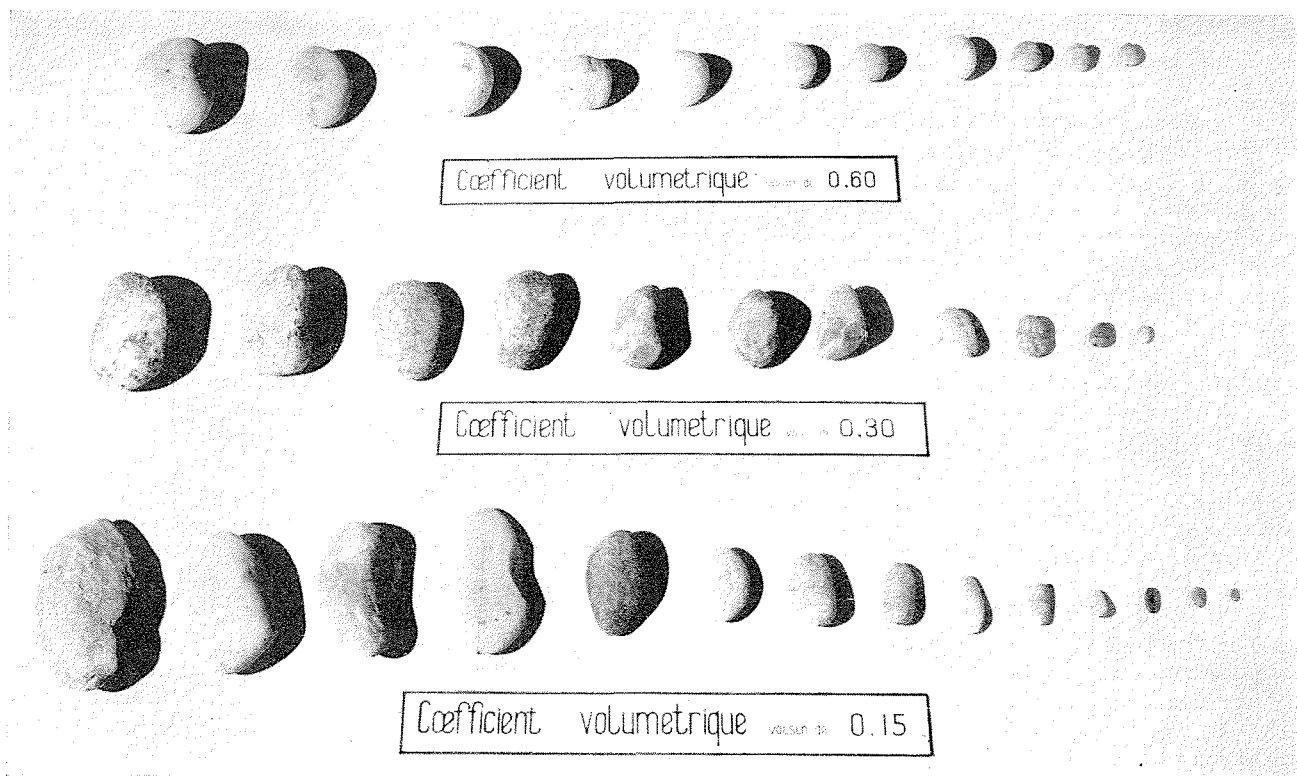 Cœfficient volumetrique voisin de 0.60
Cœfficient volumetrique 0.30
Cœfficient volumetrique voisin de 0.15